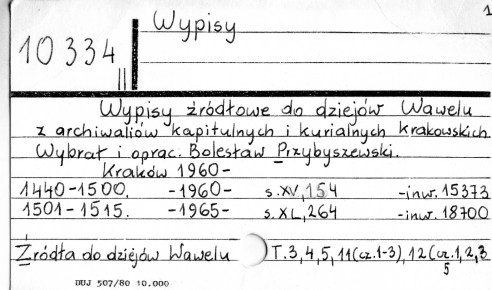 1
Wypisy
10 334
II
Wypisy źródłowe do dziejów Wawelu
z archiwaliów kapitulnych i kurialnych krakowskich.
Wybrał i oprac. Bolesław Przybyszewski.
Kraków 1960-
1440-1500. -1960- s. XV, 154 -inw. 15373
1501-1515. -1965- s. XL, 264 -inw. 18700
Źródła do dziejów Wawelu T. 3, 4, 5, 11(cz.1-3), 12(cz.1,2,3
5
DUJ 507/80 10.000